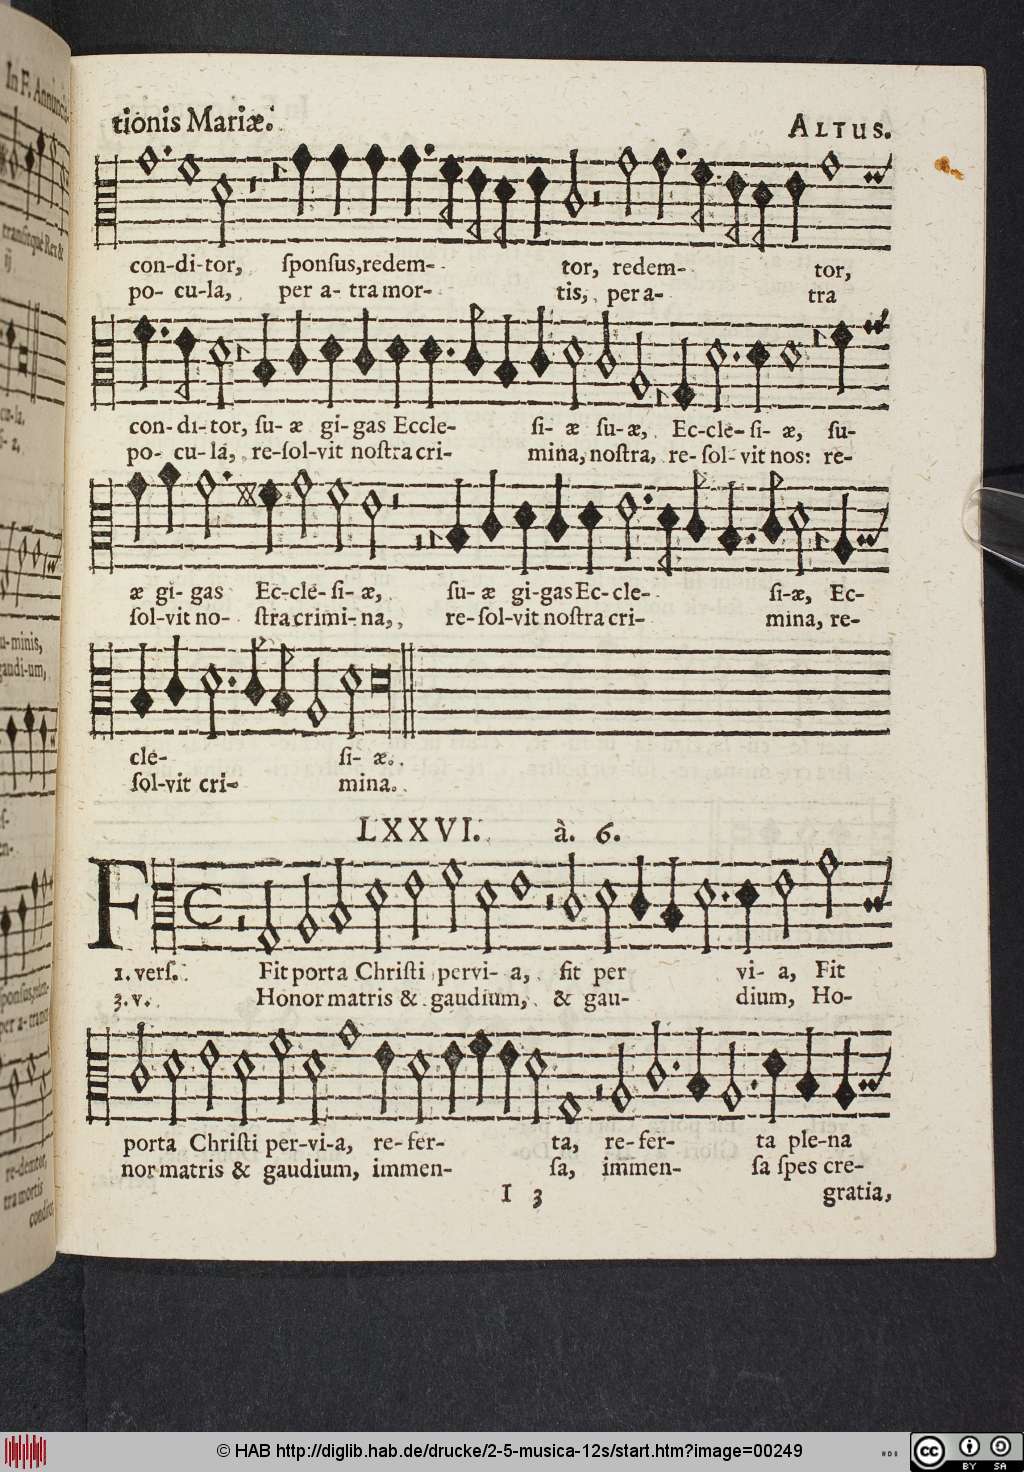 tionis Mariæ.
ALTUS.
con-di-tor, ſponſus,redem- tor, redem- tor,
po- cu-la, per a- tra mor- tis, per a- tra
con- di- tor, ſu- æ gi- gas Eccle- ſi- æ ſu- æ, Ec-cle- ſi- æ, ſu-
po- cu- la, re-ſol-vit noſtra cri- mina, noſtra, re- ſol- vit nos: re-
æ gi- gas Ec-cle- ſi- æ, ſu- æ gi-gas Ec- cle- ſi-æ, Ec-
ſol-vit no- ſtra crimi- na, re- ſol-vit noſtra cri- mina, re-
cle- ſi- æ.
ſol-vit cri- mina.
LXXVI. à. 6.
F
1. verſ. Fit porta Chriſti pervi- a, fit per vi- a, Fit
3. v. Honor matris & gaudium, & gau- dium, Ho-
porta Chriſti per-vi-a, re- fer- ta, re- fer- ta ple-na
nor matris & gaudium, immen- ſa, immen- ſa ſpes cre-
I 3 gratia,
In F. Annuncia-
tranſitque Rex &
ij
cu-la.
u-minis,
gaudi-um,
ponſus,redem-
per a- tra mor-
re-demtor,
tra mortis
condi-
© HAB http://diglib.hab.de/drucke/2-5-musica-12s/start.htm?image=00249
cc BY SA